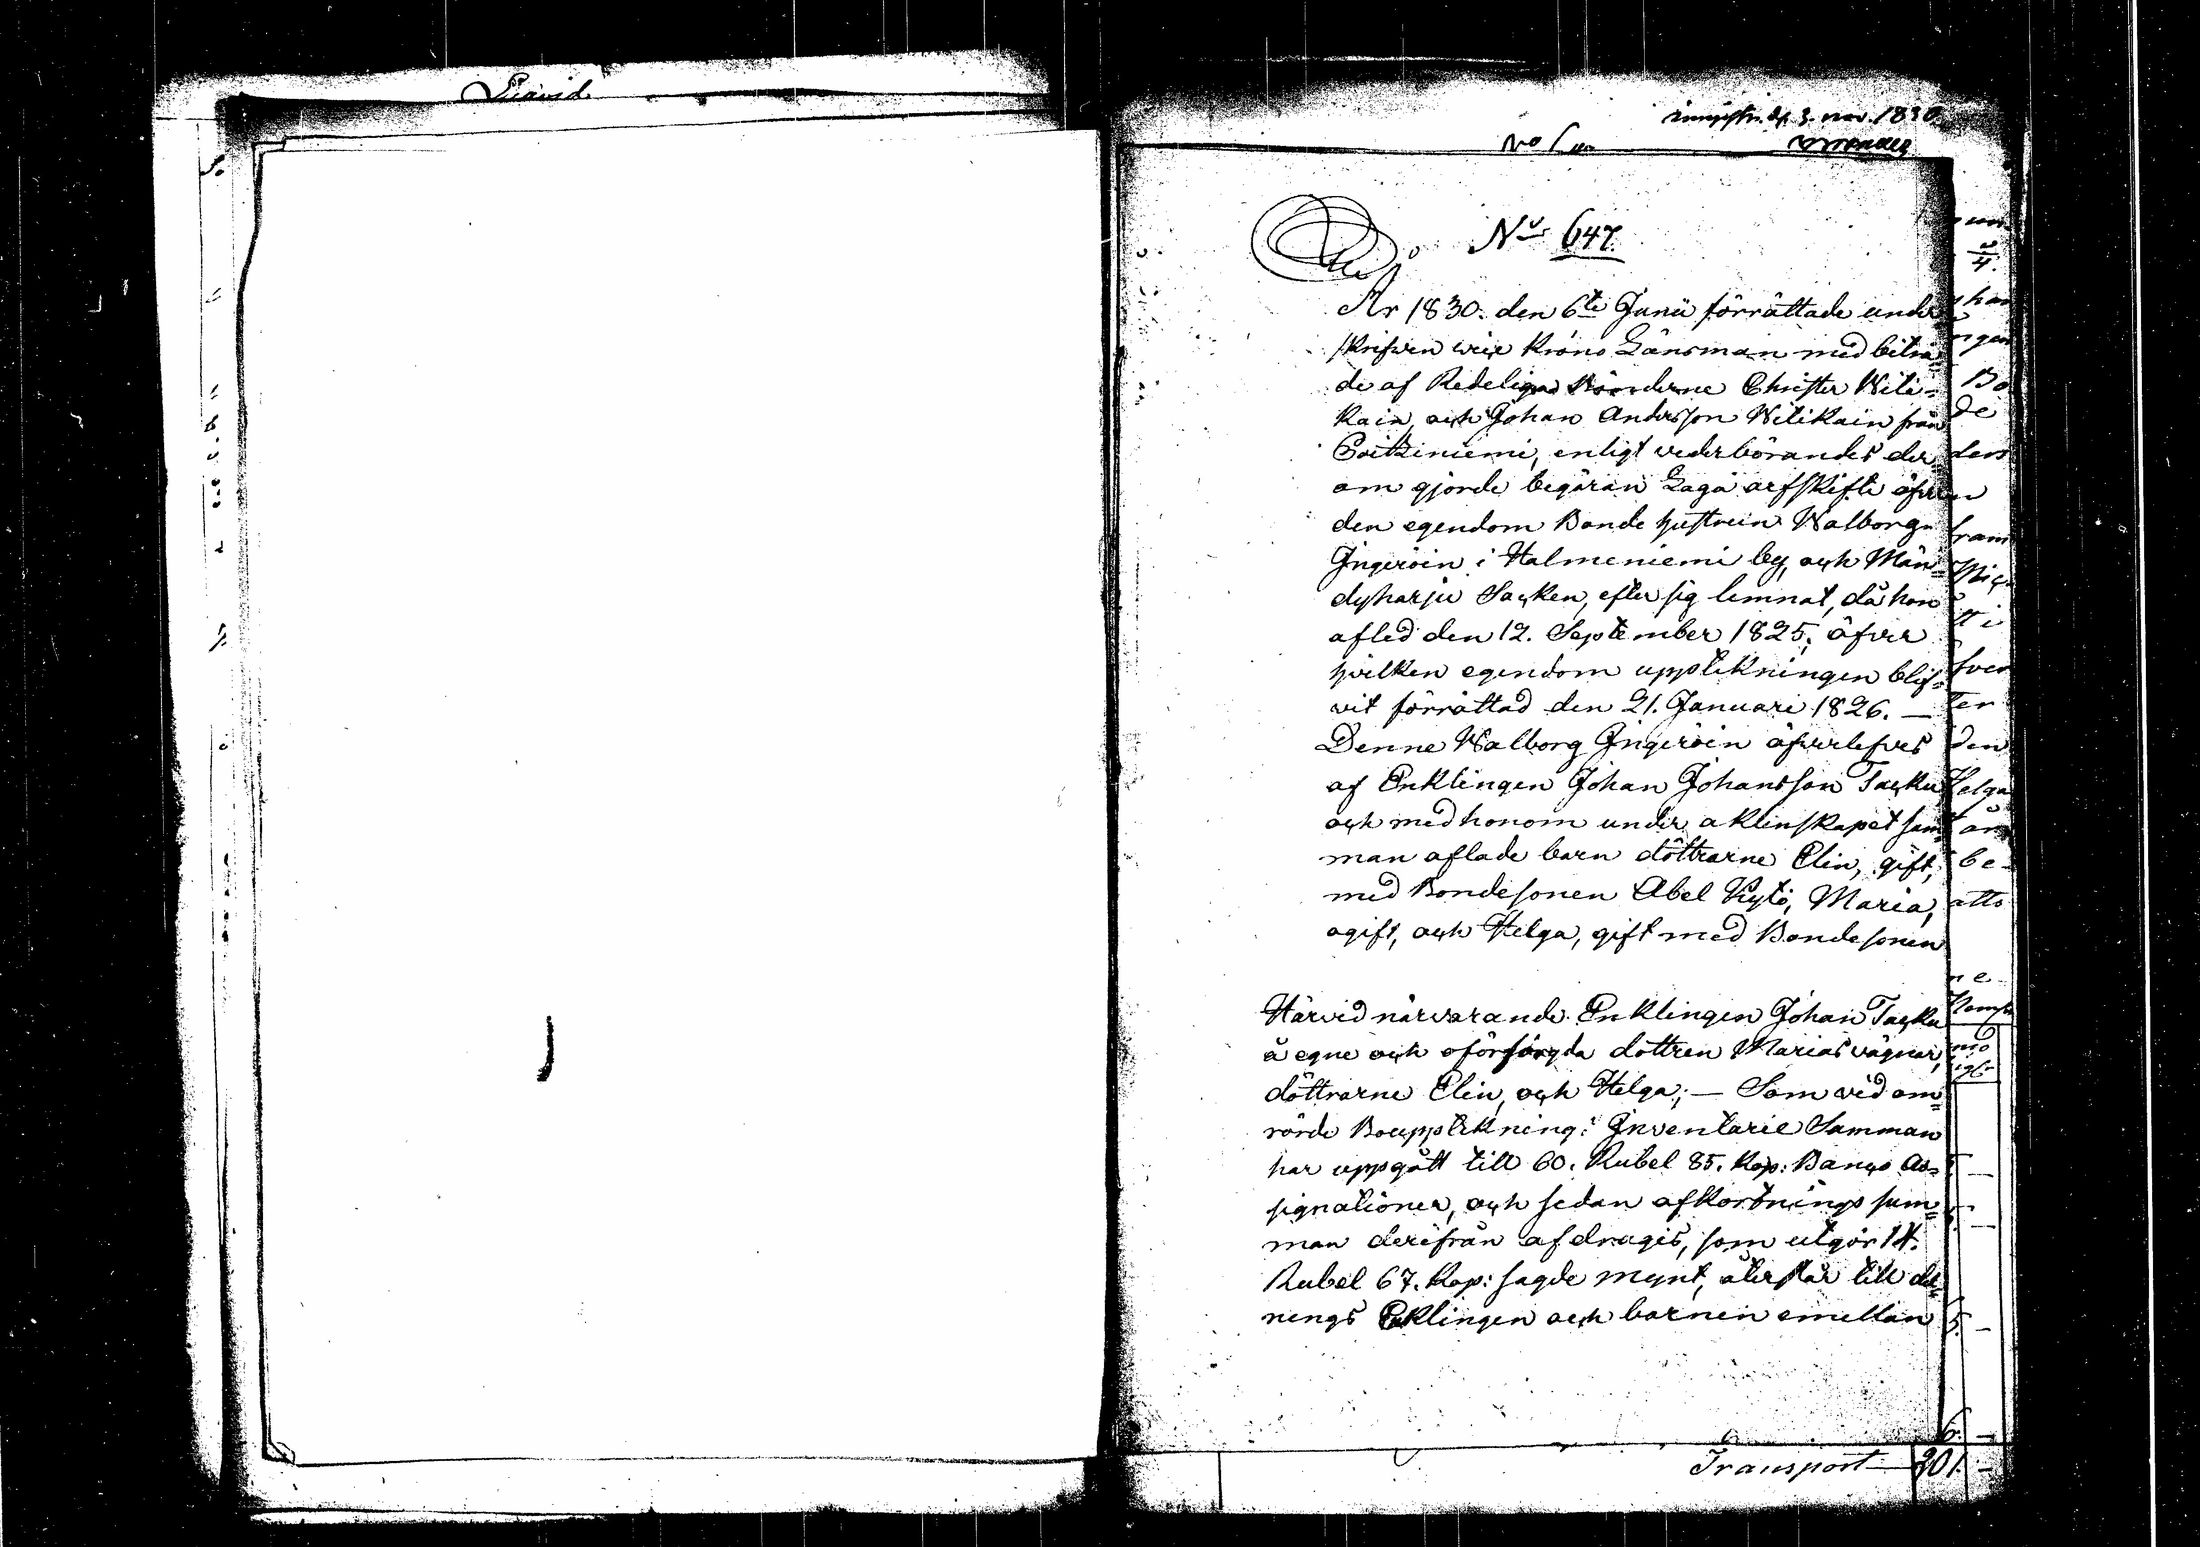 No 647.
År 1830. den 6te Junii förrättade under
skrifven vice Krono Länsman med biträ-
de af Redelige Bönderne Christer Wili-
kain, och Johan Andersson Wilikain från
Voikiniemi, enligt vederbörandes der
om gjorde begäran Laga arfskifte öfver
den egendom Bonde hustrun Walborg
Ingeröin i Halmeniemi by, och Män-
dyharju Socken, efter sig lemnat, då hon
afled den 12. September 1825, öfver
hvilken egendom upptekningen blif-
vit förrättad den 21. Januari 1826. —
Denne Walborg Ingeröin öfverlefves
af Enklingen Johan Johansson Tasku
och med honom under aktenskapet sam-
man aflade barn döttrarne Elin, gift,
med Bondesonen Abel Kylö, Maria,
ogift, och Helga, gift med Bondesonen
Härvid närvarande Enklingen Johan Tasku
å egne och oförsörgda dottren Marias vägnar,
döttrarne Elin, och Helga; — Som vid om-
rörde Bouppteknings Inventarie Samman
har uppgått till 60. Rubel 85. Kop: Banco As-
signationer, och sedan afkortnings sum-
man derifrån afdragis, som utgör 14.
Rubel 67. Kop: sagde mynt, återstår till del-
nings Enklingen och barnen emellan
Transport 201. —